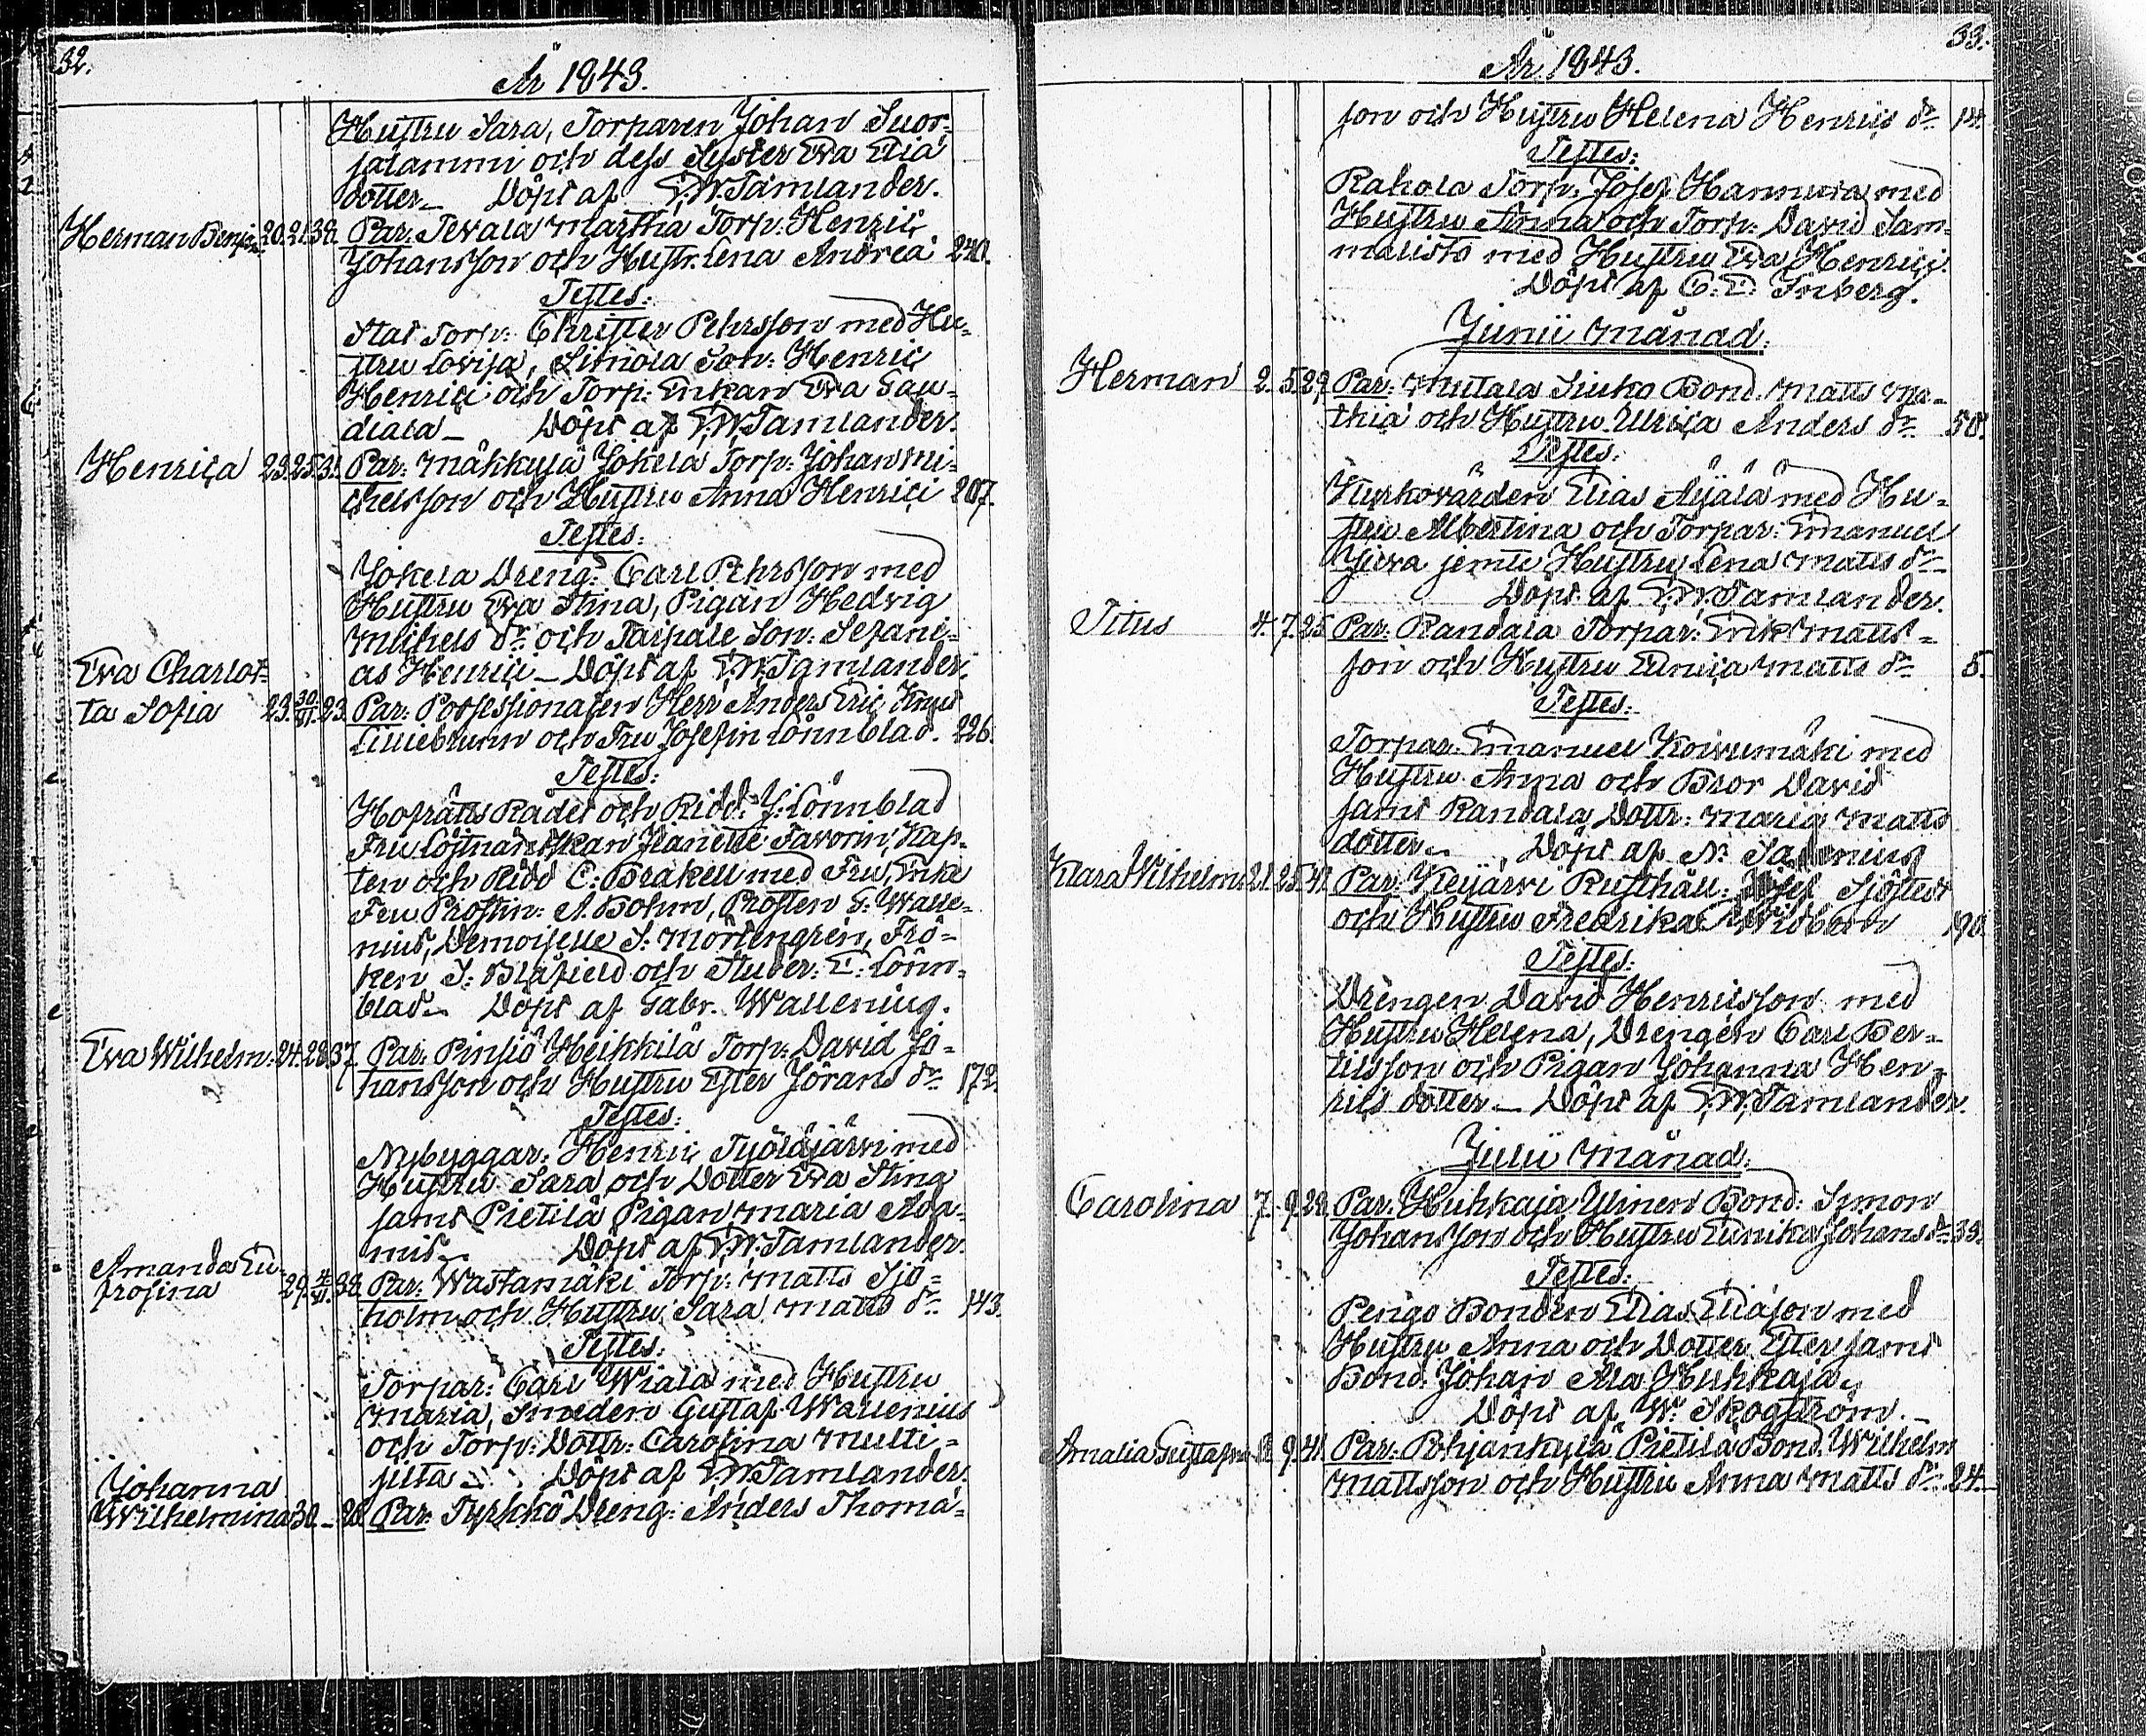 32.
År 1843.
Hustru Sara, Torparen Johan Suor-
salammi och dess Syster Eva Elia
dotter. Döpt af E.W. Tamlander.
Herman Benj: 20. 21. 38. Par: Tevala Martha Torp: Henric
Johansson och Hustr. Lena Andreä 240.
Testes:
Torp: Christer Pehrsson med Hu-
stru Lovisa, Simola Son: Henric
Henrici och Torp: Enkan Eva Gau-
diala. Döpt af E.W. Tamlander.
Henrica 23. 25. 31. Par: Mäkkylä Jokela Torp: Johan Mi-
chelsson och Hustru Anna Henrici 207.
Testes:
Jokela Dreng: Carl Pehrsson med
Hustru Eva Stina, Pigan Hedvig
Michels dr och Taipale Son: Sefani-
as Henrici. Döpt af E.W. Tamlander.
Eva Charlot-
ta Sofia 23. 30/VI. 23. Par: Possessionaten Herr Anders Eric Knut
Lilliebrunn och Fru Josefin Lönnblad. 226.
Testes:
Hofrätts Rådet och Ridd: J: Lönnblad
Fru Löjtnantskan Jeanette Favorin, Kap-
ten och Ridd C: Brakell med Fru, Enke
Fru Prostin: A. Bohm, Prosten G: Walle-
nius, Demoiselle S: Mörtengren, Frö-
ken S: Blåfield och Studer: E: Lönn-
blad. Döpt af Gabr. Wallenius.
Eva Wilhelm: 24. 28. 37. Par: Pinsiö Heikkilä Torp: David Jo-
hansson och Hustru Ester Jörans dr 172.
Testes:
Nybyggar: Henric Työläjärvi med
Hustru Sara och Dotter Eva Stina
samt Pietilä Pigan Maria Ada-
mid. Döpt af E.W. Tamlander.
Amanda Eu-
frosina 29. 4/VI. 38. Par: Wastamäki Torp: Matts Sjö-
holm och Hustru Sara Matts dr 143.
Testes:
Torpar: Carl Wiala med Hustru
Maria, Smeden Gustaf Wallenius
och Torp: Dottr: Carolina Multi-
silta. Döpt af E.W. Tamlander.
Johanna
Wilhelmina 30. _ 28. Par: Tyrkkö Dreng: Anders Thoma-
33.
År 1843.
son och Hustru Helena Henrics dr 14.
Testes:
Rahola Torp: Josef Hannula med
Hustru Anna och Torp: David Sam-
malisto med Hustru Eva Henrici.
Döpt af C. E. Inberg.
Junii Månad.
Herman 2. 5. 29. Par: Mutala Siuko Bond. Matts Ma-
thiä och Hustru Ulrica Anders dr 58.
Testes:
Kyrkovärden Elias Äijälä med Hu-
stru Albertina och Torpar: Emanuel
Yliva jemte Hustru Lena Matts dr
Döpt af E.W. Tamlander.
Titus 4. 7. 25. Par: Randala Torpar: Erik Matts-
son och Hustru Eunica Matts dr 5.
Testes:
Torpar: Emanuel Koivumäki med
Hustru Anna och Bror David
samt Randala Dottr: Maria Matts
dotter. Döpt af N: Salenius
Klara Wilhelm: 21. 25. 41. Par: Kyijärvi Rusthåll: Josef Sjöstedt
och Hustru Fredrika Widbom 190.
Testes:
Drengen David Henricsson med
Hustru Helena, Drengen Carl Ber-
tilsson och Pigan Johanna Hen-
rics dotter. Döpt af E.W. Tamlander.
Julii Månad.
Carolina 7. 9. 29. Par: Huhkaja Ylinen Bond: Simon
Johansson och Hustru Eunika Johans dr 39.
Testes:
Pengo Bonden Elias Eliäson med
Hustru Anna och Dotter Ester samt
Bond. Johan Ala Huhkaja.
Döpt af W. Skogström.
Amalia Gustafva 8. 9. 41. Par: Pohjankylä Pietilä Bond. Wilhelm
Mattsson och Hustru Anna Matts dr 24.